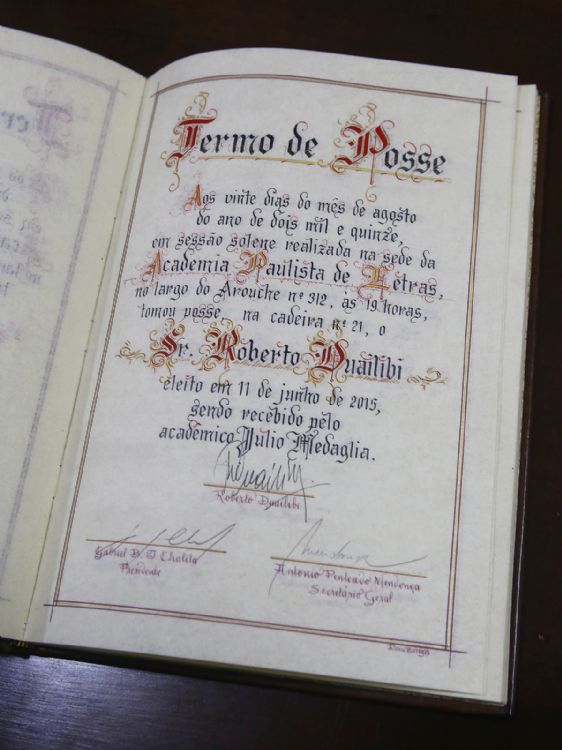 Termo de Posse
Aos vinte dias do mês de agosto
do ano de dois mil e quinze,
em sessão solene realizada na sede da
Academia Paulista de Letras,
no largo do Arouche nº 312, às 19 horas,
tomou posse, na cadeira nº 21, o
Sr. Roberto Duailibi
eleito em 11 de junho de 2015,
sendo recebido pelo
acadêmico Júlio Medaglia.
Roberto Duailibi
Gabriel B. I. Chalita
Presidente
Antonio Penteado Mendonça
Secretário Geral